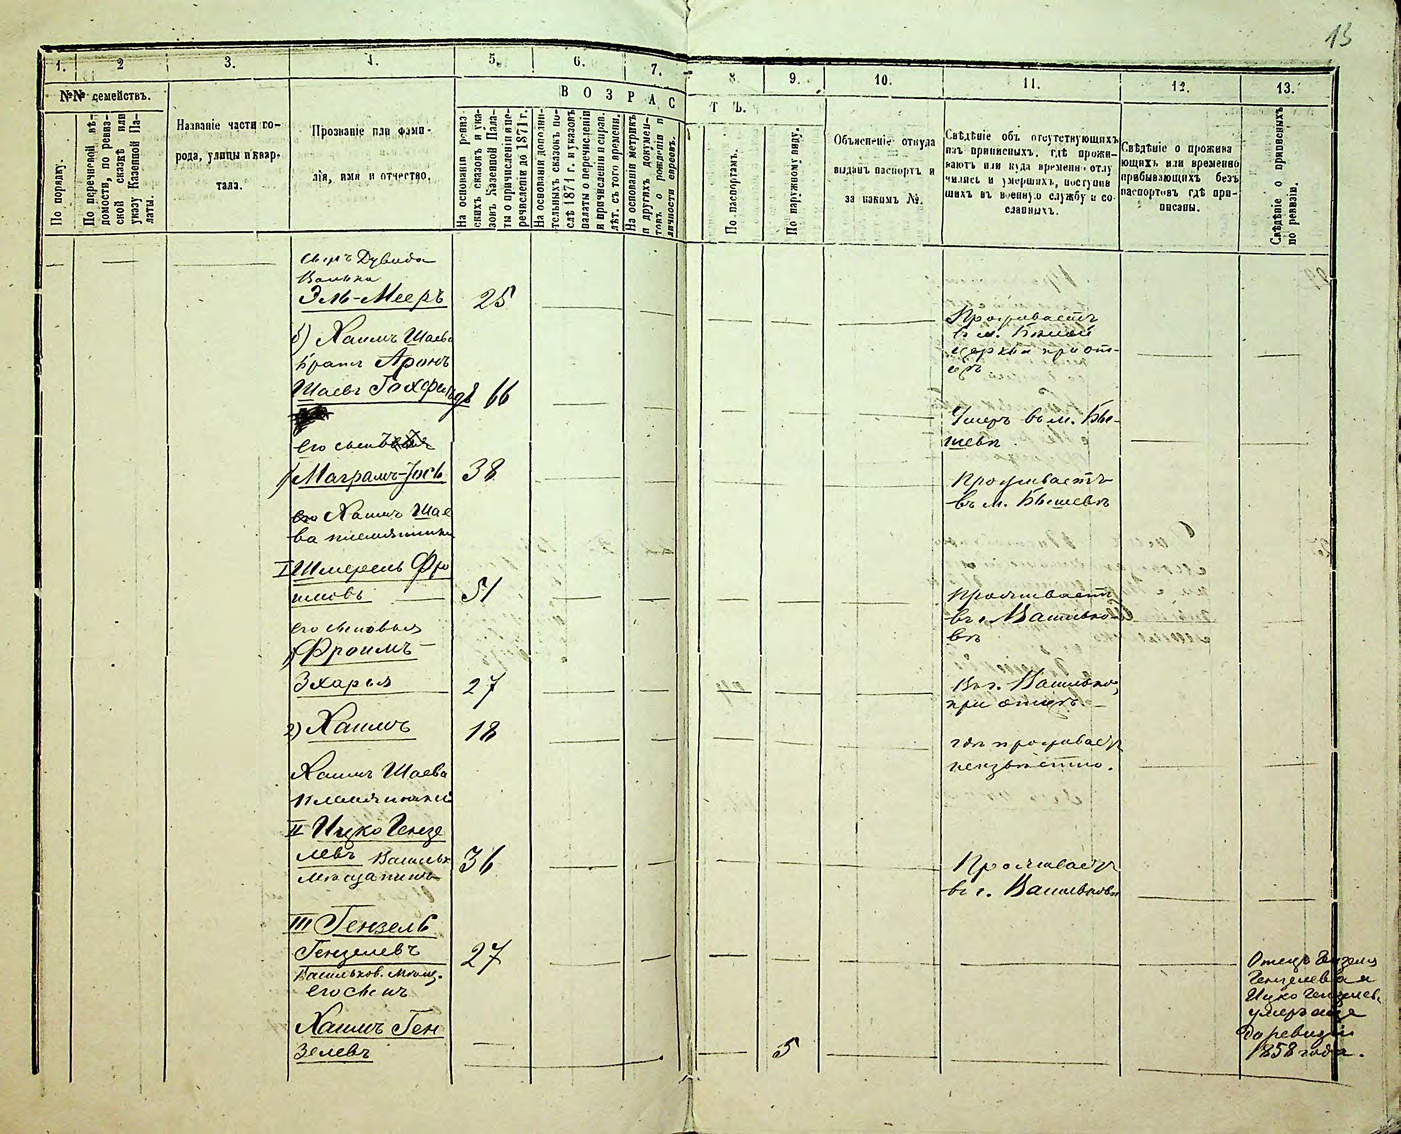 13
1. 2 3. 4. 5. 6. 7. 8. 9. 10. 11. 12. 13.
№№ семействъ.
В О З Р А С Т Ъ.
По порядку.
По перечневой вѣ-
домости, по ревиз-
ской сказкѣ или
указу Казенной Па-
латы.
Названіе части го-
рода, улицы и квар-
тала.
Прозваніе или фами-
лія, имя и отчество.
На основаніи ревиз
скихъ сказокъ и ука-
зовъ Казенной Пала-
ты о причисленіи и пе-
речисленіи до 1871 г.
На основаніи дополни-
тельныхъ сказокъ по-
слѣ 1871 г. и указовъ
палаты о перечисленіи
и причисленіи и исправ.
лѣт. съ того времени.
На основаніи метрикъ
и другихъ докумен-
товъ о рожденіи и
личности евреевъ.
По паспортамъ.
По наружному виду.
Объясненіе откуда
выданъ паспортъ и
за какимъ №.
Свѣдѣніе объ отсутствующихъ
изъ приписныхъ, гдѣ прожи-
ваютъ или куда временно отлу
чились и умершихъ, поступив
шихъ въ военную службу и со-
сланныхъ.
Свѣдѣніе о прожива
ющихъ или временно
прибывающихъ безъ
паспортовъ гдѣ при-
писаны.
Свѣдѣніе о приписныхъ
по ревизіи.
сынъ Дувида
Эль-Мееръ 25
Проживаетъ
в м. Бѣлой
церкви при от-
цѣ
б) Хаимъ Шаева
братъ Аронъ
Шаевъ 66
Умеръ въ м. Бы-
шевѣ
его сынъ
1) Маграмъ-Іось 38
Проживаетъ
въ м. Бышевѣ
Хаимъ Шае
ва племянники
I Шмерель Фро
имовъ 51
Проживаетъ
въ г. Василько-
вѣ
его сыновья
1) Фроимъ-
Зхарья 27
Въ г. Васильков,
при отцѣ.
2) Хаимъ 18
гдѣ проживаетъ
неизвѣстно.
Хаимъ Шаева
племянники
II Ицко Гензе
левъ Васильк
мѣщанинъ 36
Проживаетъ
въ г. Васильковѣ
III Гензель
Гензелевъ 27
Васильков. мѣщ.
его сынъ
Хаимъ Ген
зелевъ 5
Отецъ Гензеля
Гензелева
Ицко Гензелевъ
умеръ еще
до ревизіи
1858 года.